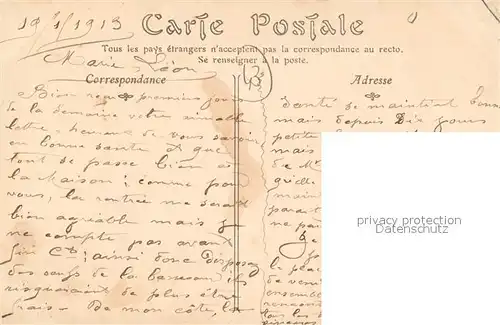 19/1/1913
Carte Postale
Tous les pays étrangers n'acceptent pas la correspondance au recto.
Se renseigner à la poste.
Marie Léon
Correspondance
Adresse
Bien reçu premiers jours
de la semaine votre aimable
lettre, heureux de vous savoir
en bonne santé & que
tout se passe bien à
la Maison; comme pour
vous, la rentrée me serait
bien agréable mais je
ne compte pas avant
fin Ct; ainsi donc disposez
des œufs de la basse cour ils
risqueraient de plus être
frais. De mon côté, la
santé se maintient bonne
mais depuis dix jours
petite
mais
de Mr
qu'elle
main
parait
ne pa
je
le place
de veni
ensemble
privacy protection
Datenschutz